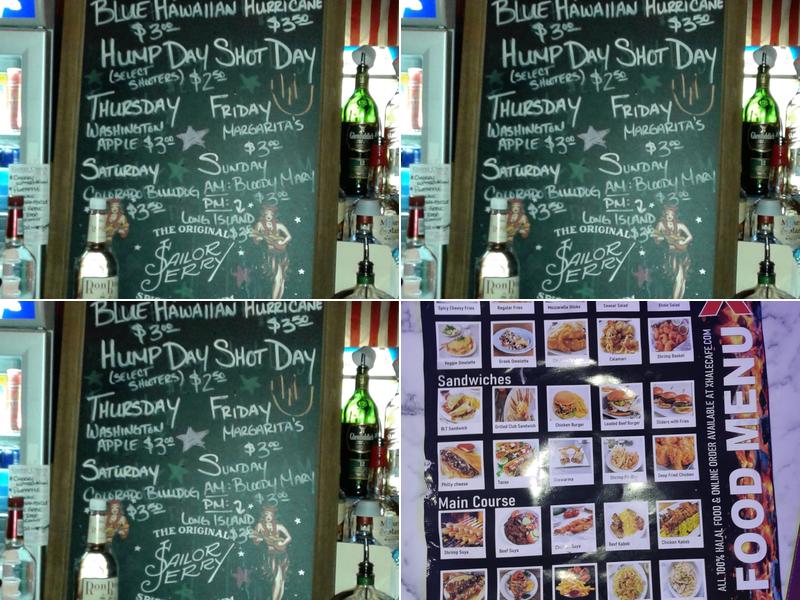 BLUE HAWAIIAN HURRICANE
$3.00 $3.50
HUMP DAY SHOT DAY
(SELECT SHOOTERS) $2.50
THURSDAY FRIDAY
WASHINGTON APPLE $3.00 MARGARITA'S $3.00
SATURDAY SUNDAY
COLORADO BULLDOG $3.50 AM: BLOODY MARY
PM: LONG ISLAND
THE ORIGINAL
SAILOR JERRY
Glenfiddich
BLUE HAWAIIAN HURRICANE
$3.00 $3.50
HUMP DAY SHOT DAY
(SELECT SHOOTERS) $2.50
THURSDAY FRIDAY
WASHINGTON APPLE $3.00 MARGARITA'S $3.00
SATURDAY SUNDAY
COLORADO BULLDOG $3.50 AM: BLOODY MARY
PM: LONG ISLAND
THE ORIGINAL
SAILOR JERRY
Glenfiddich
BLUE HAWAIIAN HURRICANE
$3.00 $3.50
HUMP DAY SHOT DAY
(SELECT SHOOTERS) $2.50
THURSDAY FRIDAY
WASHINGTON APPLE $3.00 MARGARITA'S $3.00
SATURDAY SUNDAY
COLORADO BULLDOG $3.50 AM: BLOODY MARY
PM: LONG ISLAND
THE ORIGINAL
SAILOR JERRY
Glenfiddich
Spicy Cheesy Fries Regular Fries Mozzarella Sticks Caesar Salad
Veggie Omelette Greek Omelette Calamari Shrimp Basket
Sandwiches
BLT Sandwich Grilled Club Sandwich Chicken Burger Loaded Beef Burger Sliders with Fries
Philly cheese Tacos Shawarma Shrimp Deep Fried Chicken
Main Course
Shrimp Suya Beef Suya Suya Beef Kabob Chicken Kabob
ALL 100% HALAL FOOD & ONLINE ORDER AVAILABLE AT XHALECAFE.COM
FOOD MENU